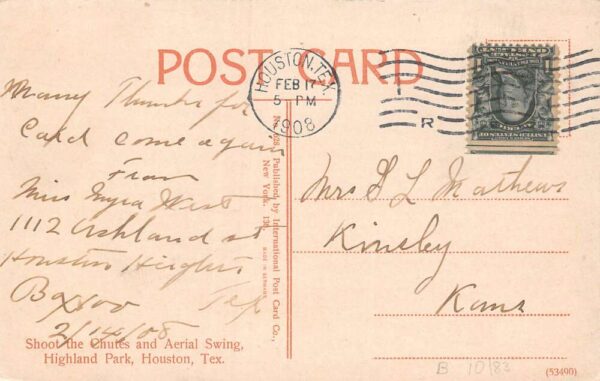 POST CARD
HOUSTON, TEX.
FEB 17
5 PM
1908
R
Many Thanks for
Card come again
From
Miss Myra West
1112 Ashland st
Houston Heights
Box 100 Tex
2/14/08
Mrs S L Mathews
Kinsley
Kans
Published by International Post Card Co.,
New York.
MADE IN GERMANY
Shoot the Chutes and Aerial Swing,
Highland Park, Houston, Tex.
B 10183
(53490)